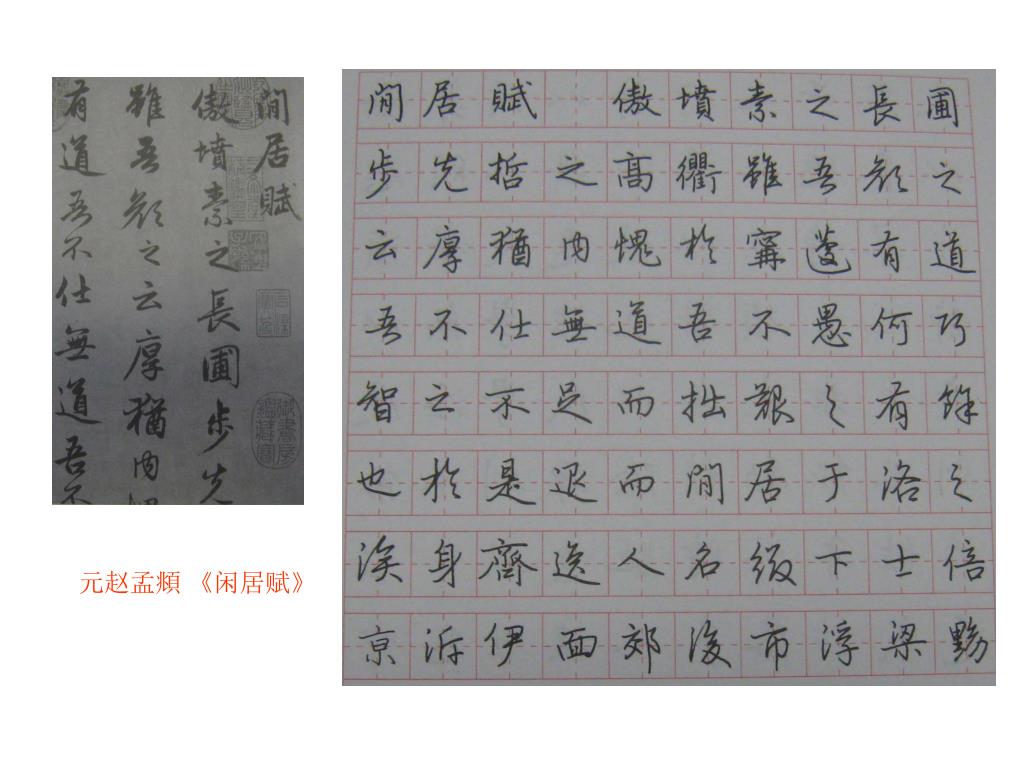 閒居賦
傲墳素之長圃步先
雖吾顏之云厚猶內
有道吾不仕無道吾不
閒居賦　傲墳素之長圃
步先哲之高衢雖吾顏之
云厚猶內愧於甯蘧有道
吾不仕無道吾不愚何巧
智之不足而拙艱之有餘
也於是退而閒居于洛之
涘身齊逸人名綴下士倍
京泝伊面郊後市浮梁黝
元赵孟頫 《闲居赋》